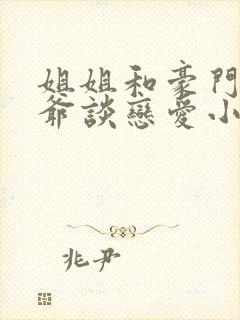 姐姐和豪門
爺談戀愛小
兆尹